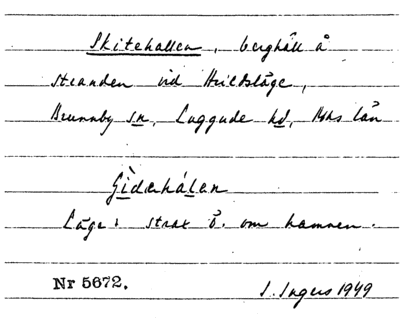 Skitehallen, berghäll å
stranden vid Arildsläge,
Brunnby sn, Luggude hd, Mhs län
Gìdehálen
Läge: strax ö. om hamnen.
Nr 5672. I. Ingers 1949